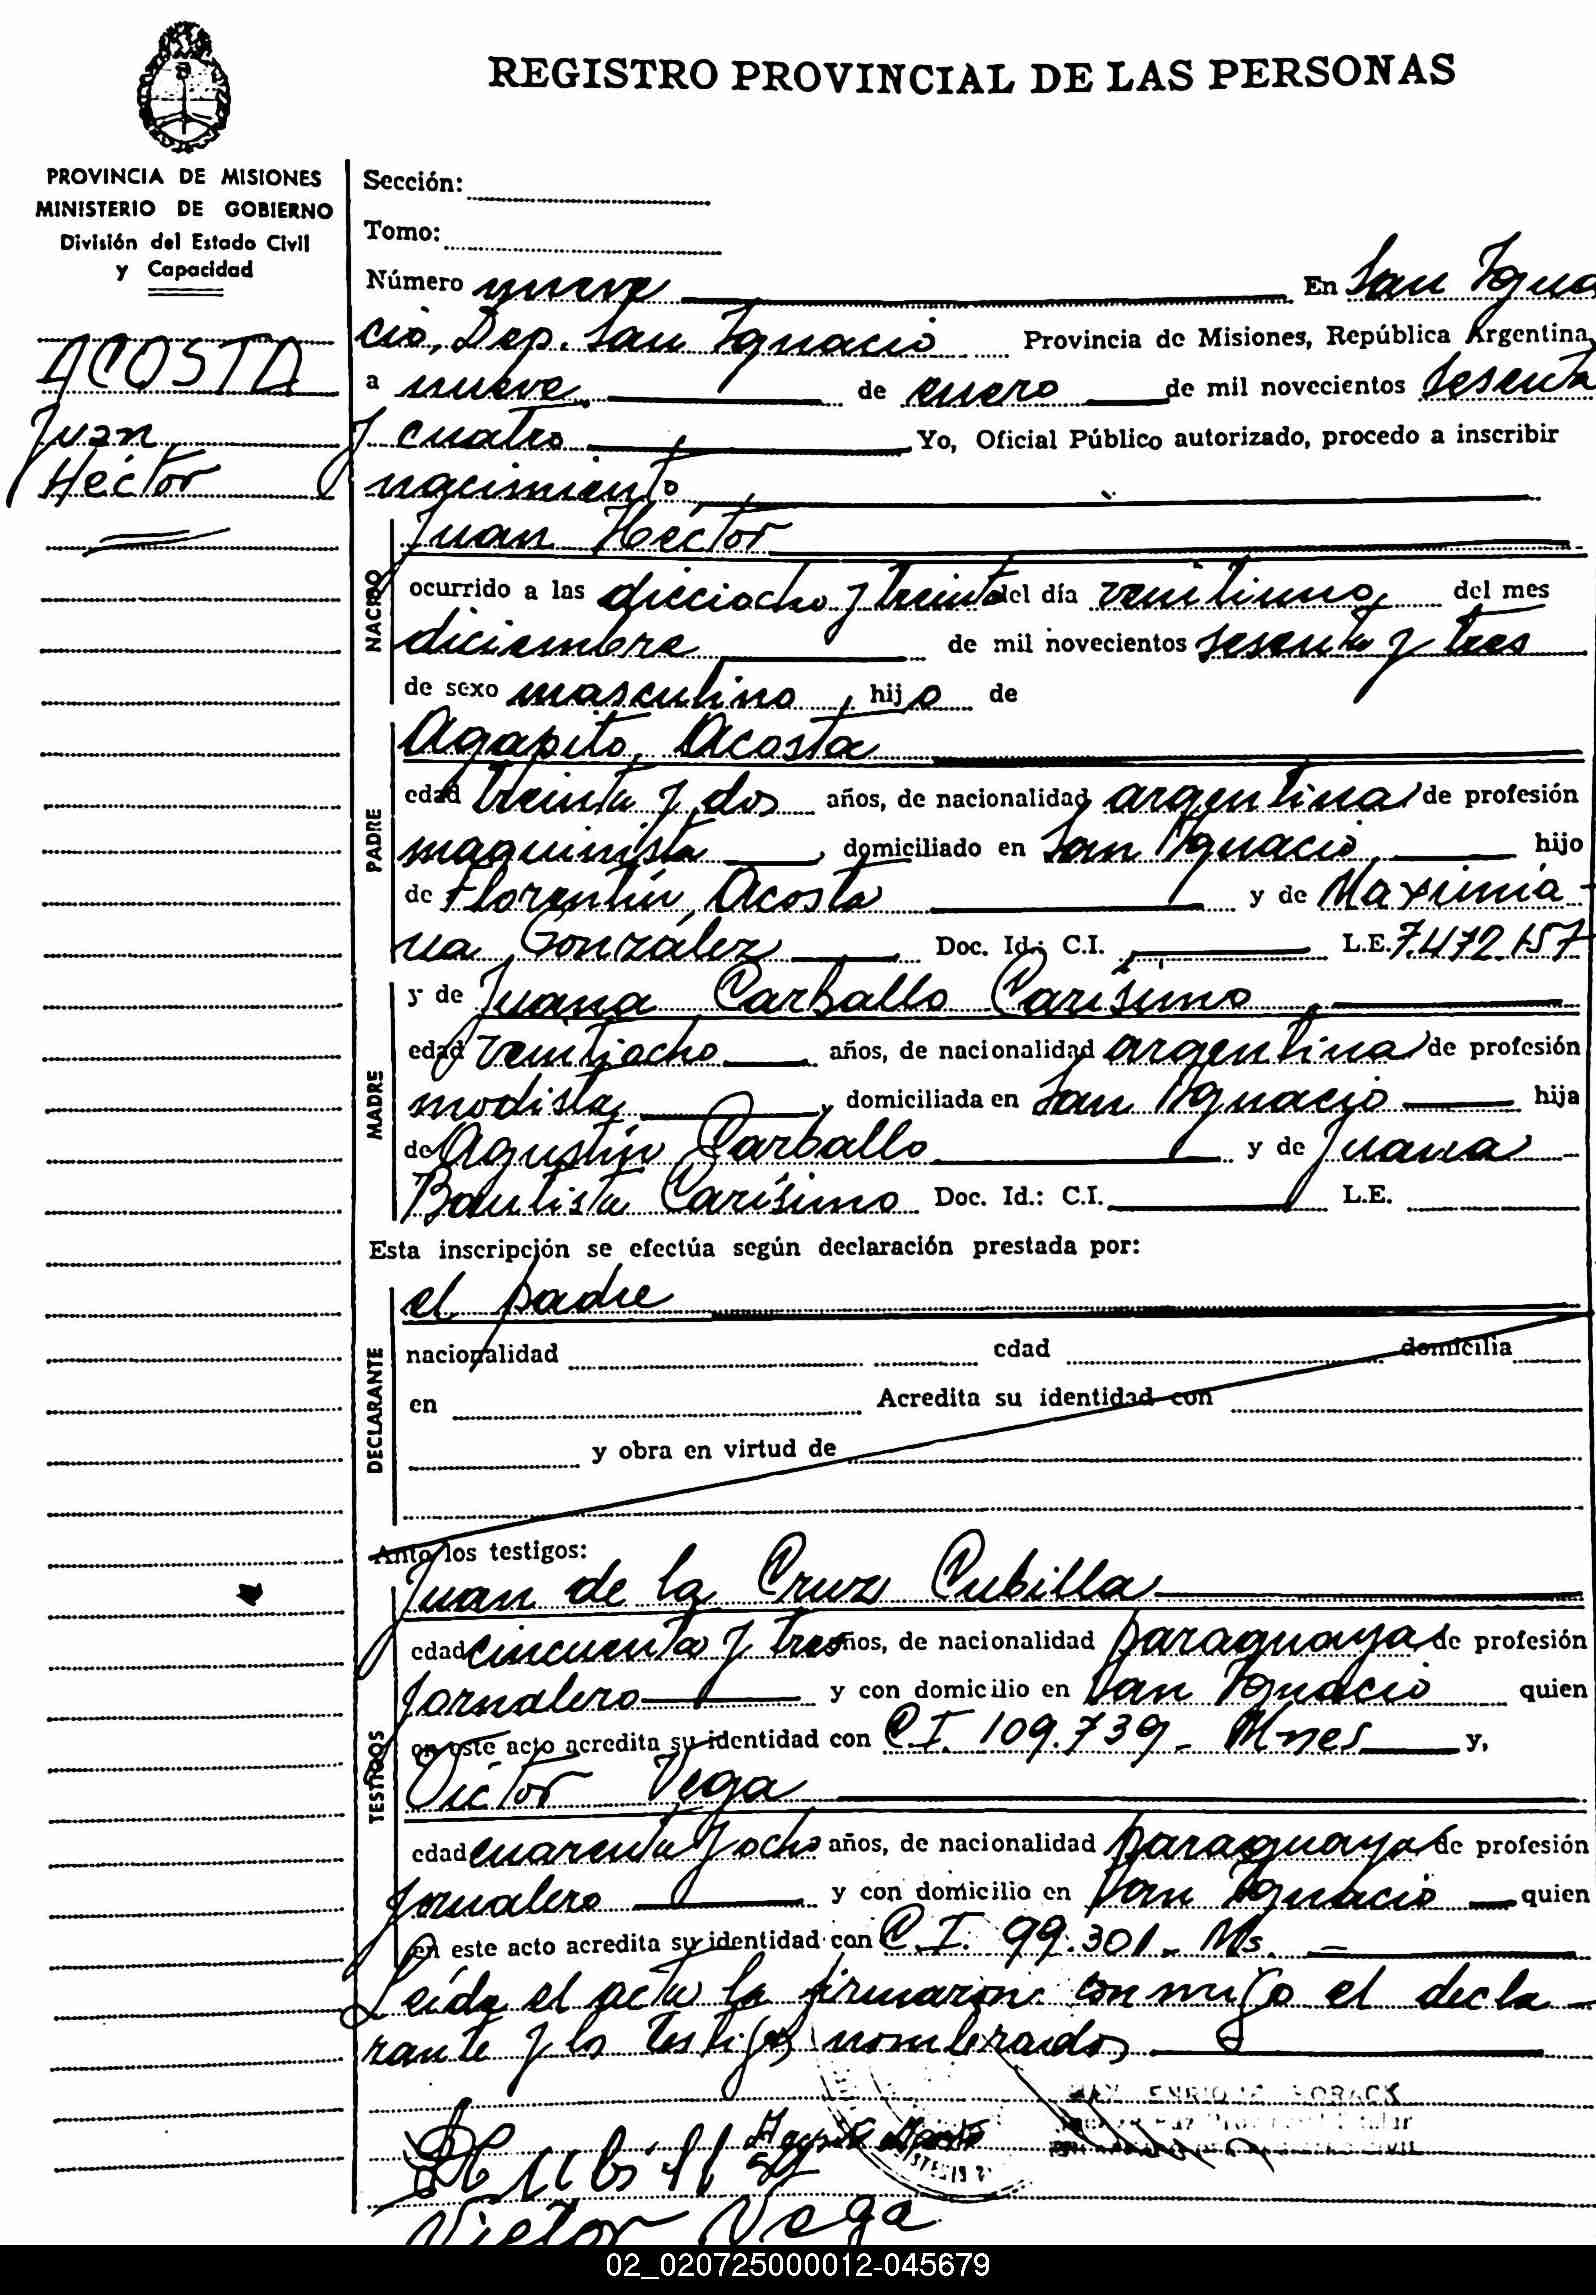 REGISTRO PROVINCIAL DE LAS PERSONAS
PROVINCIA DE MISIONES
MINISTERIO DE GOBIERNO
División del Estado Civil
y Capacidad
ACOSTA
Juan
Héctor
Sección:
Tomo:
Número nueve En San Igna
cio, Dep. San Ignacio Provincia de Misiones, República Argentina,
a nueve de enero de mil novecientos sesenta
y cuatro Yo, Oficial Público autorizado, procedo a inscribir
nacimiento
NACIDO
Juan Héctor
ocurrido a las dieciocho y treinta del día veintiuno, del mes
diciembre de mil novecientos sesenta y tres
de sexo masculino, hijo de
PADRE
Agapito Acosta
edad treinta y dos años, de nacionalidad argentina de profesión
maquinista, domiciliado en San Ignacio hijo
de Florentín Acosta y de Maximia-
na González Doc. Id.: C.I. L.E. 7.472.157
MADRE
y de Juana Carballo Carísimo,
edad veintiocho años, de nacionalidad argentina de profesión
modista, domiciliada en San Ignacio hija
de Agustín Carballo y de Juana
Bautista Carísimo Doc. Id.: C.I. L.E.
Esta inscripción se efectúa según declaración prestada por:
DECLARANTE
el padre
nacionalidad edad domicilia
en Acredita su identidad con
y obra en virtud de
Ante los testigos:
TESTIGOS
Juan de la Cruz Cubilla
edad cincuenta y tres años, de nacionalidad paraguaya de profesión
jornalero y con domicilio en San Ignacio quien
en este acto acredita su identidad con C.I. 109.739 - Mnes y,
Victor Vega
edad cuarenta y ocho años, de nacionalidad paraguaya de profesión
jornalero y con domicilio en San Ignacio quien
en este acto acredita su identidad con C.I. 99.301 - Ms. -
Leída el acta la firmaron conmigo el decla-
rante y los testigos nombrados
ENRIQUE
CIVIL
Agapito Acosta
Cubilla
Victor Vega
02_020725000012-045679